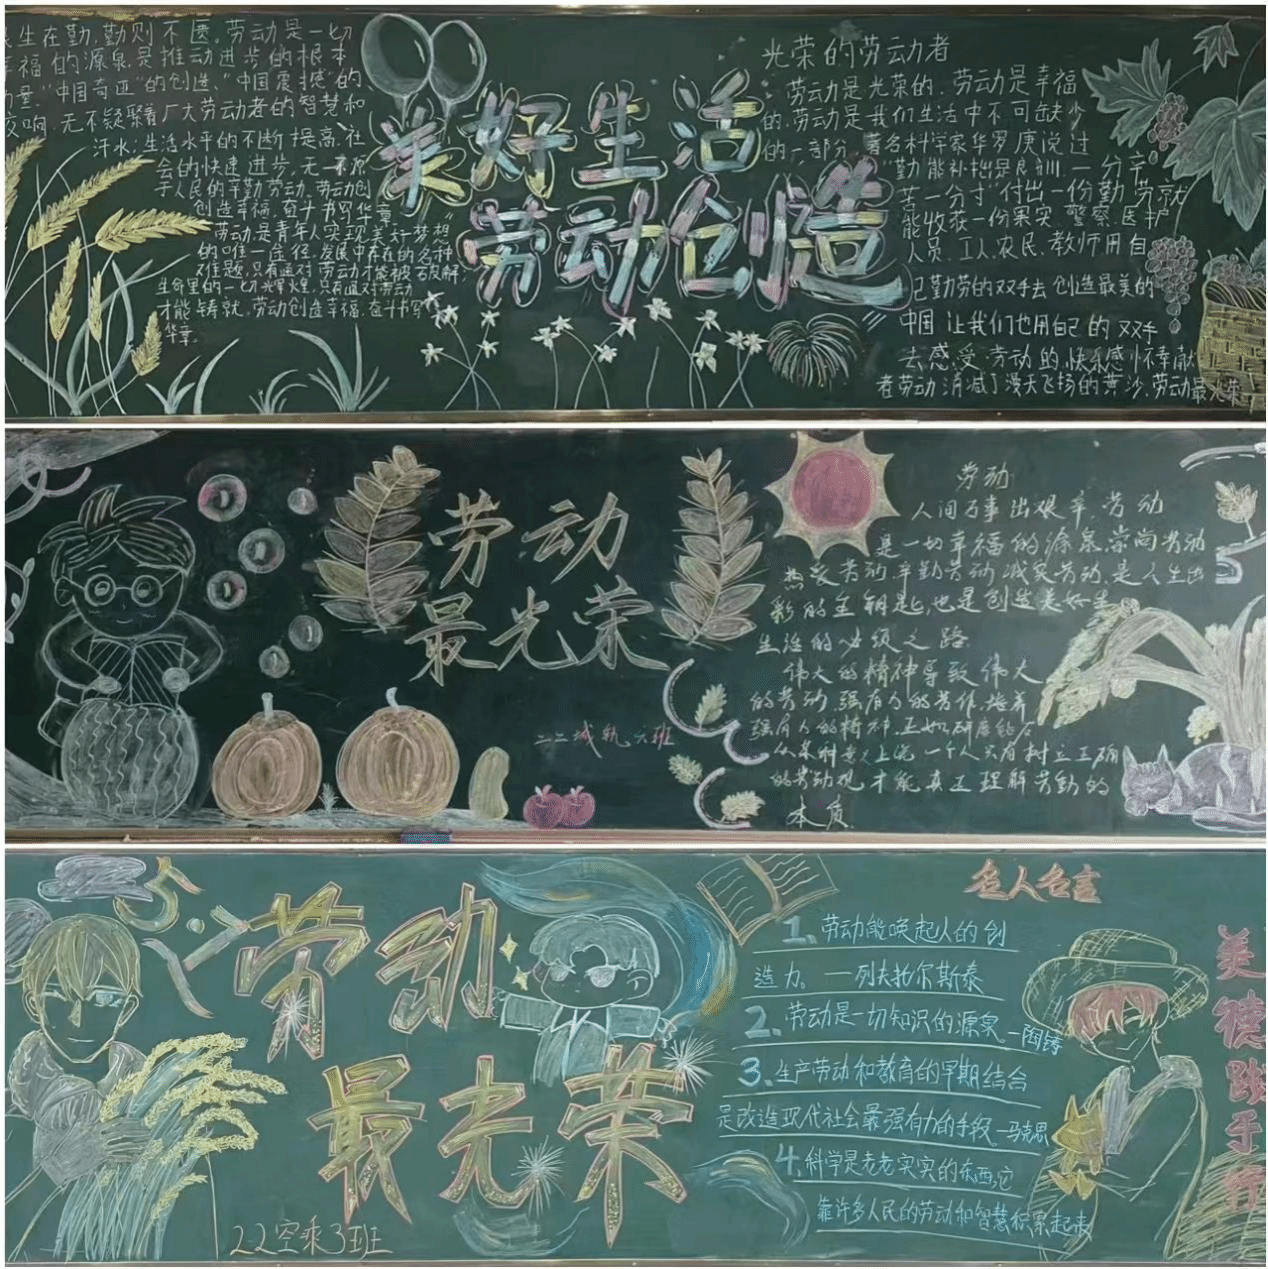 生在勤,勤则不匮。劳动是一切
幸福的源泉,是推动进步的根本
力量。"中国奇迹"的创造、"中国震撼"的
反响,无不凝聚着广大劳动者的智慧和
汗水;生活水平的不断提高、社
会的快速进步,无一不源
于人民的辛勤劳动。劳动创
创造幸福,奋斗书写华章
劳动是青年人实现美好梦想
的唯一途径,发展中存在的各种
难题,只有通过劳动才能被破解,
生命里的一切辉煌,只有通过劳动
才能铸就,劳动创造幸福,奋斗书写
华章。
美好生活
劳动创造
光荣的劳动者
劳动是光荣的,劳动是幸福
的,劳动是我们生活中不可缺少
的一部分,著名科学家华罗庚说过
"勤能补拙是良训,一分辛
苦一分才"付出一份勤劳就
能收获一份果实,警察,医护
人员,工人,农民,教师用自
己勤劳的双手去创造最美的
中国 让我们也用自己的双手
去感受劳动的快乐感怀奉献
者劳动消减了漫天飞扬的黄沙,劳动最光荣
劳动
最光荣
二二城轨六班
劳动
人间万事出艰辛,劳动
是一切幸福的源泉,崇尚劳动
热爱劳动,辛勤劳动,诚实劳动,是人生出
彩的金钥匙,也是创造美好生
生活的必须之路
伟大的精神导致伟大
的劳动,强有力的劳作,培养
强有力的精神,正如研磨钻石
从某种意义上说,一个人只有树立正确
的劳动观,才能真正理解劳動的
本质
劳动
最光荣
22空乘3班
名人名言
1、劳动能唤起人的创
造力。—列夫托尔斯泰
2、劳动是一切知识的源泉—陶铸
3、生产劳动和教育的早期结合
是改造现代社会最强有力的手段。—马克思
4、科学是老老实实的东西,它
靠许多人民的劳动和智慧积累起来
美德践于行